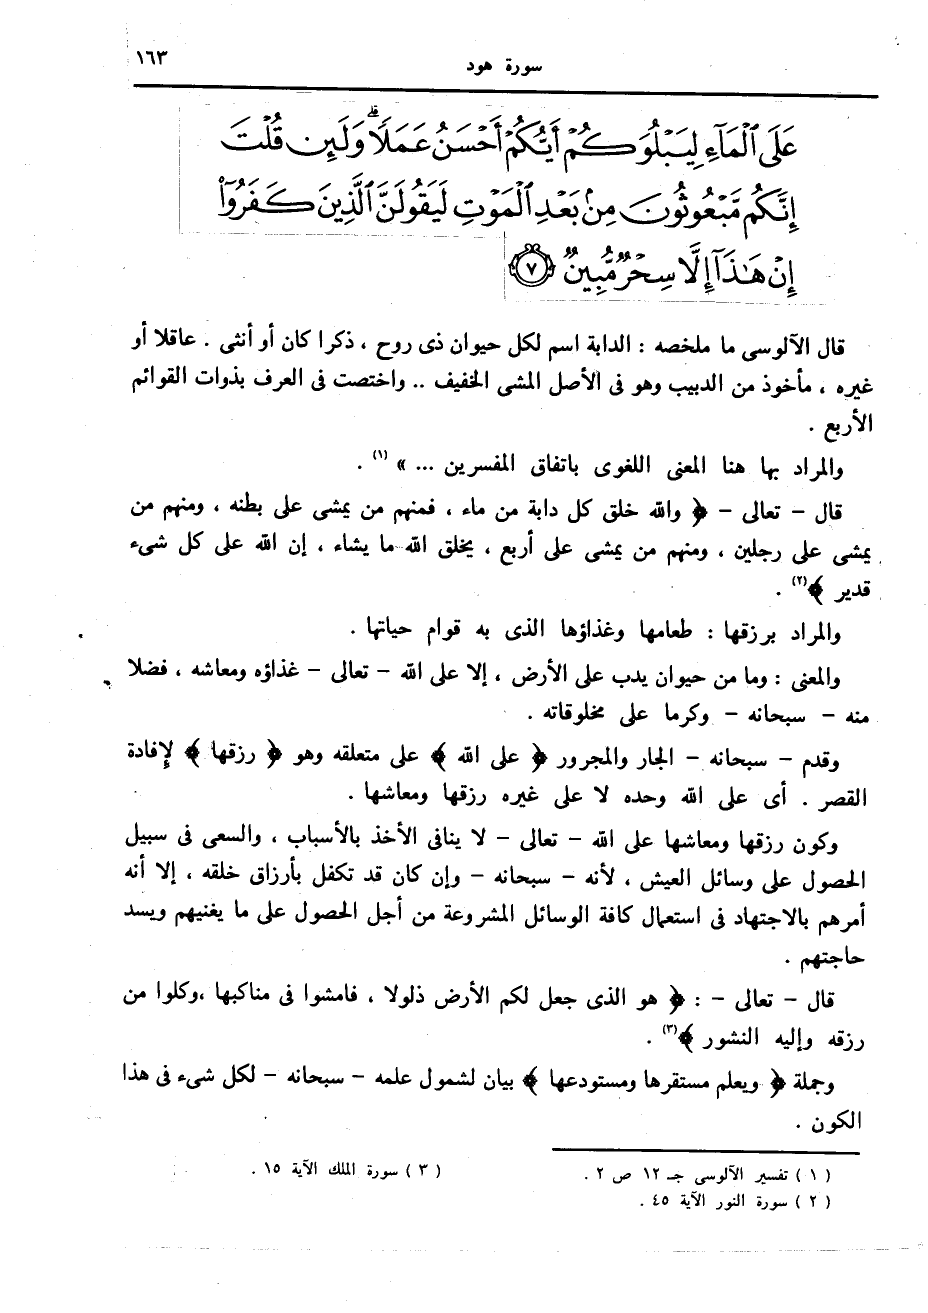 سورة هود
١٦٣
عَلَى ٱلْمَآءِ لِيَبْلُوَكُمْ أَيُّكُمْ أَحْسَنُ عَمَلًا ۗ وَلَئِن قُلْتَ
إِنَّكُم مَّبْعُوثُونَ مِنۢ بَعْدِ ٱلْمَوْتِ لَيَقُولَنَّ ٱلَّذِينَ كَفَرُوٓا۟
إِنْ هَـٰذَآ إِلَّا سِحْرٌ مُّبِينٌ ٧
قال الآلوسى ما ملخصه : الدابة اسم لكل حيوان ذى روح ، ذكرا كان أو أنثى . عاقلا أو
غيره ، مأخوذ من الدبيب وهو فى الأصل المشى الخفيف .. واختصت فى العرف بذوات القوائم
الأربع .
والمراد بها هنا المعنى اللغوى باتفاق المفسرين ... » (١) .
قال – تعالى – ﴿ والله خلق كل دابة من ماء ، فمنهم من يمشى على بطنه ، ومنهم من
يمشى على رجلين ، ومنهم من يمشى على أربع ، يخلق الله ما يشاء ، إن الله على كل شىء
قدير ﴾(٢) .
والمراد برزقها : طعامها وغذاؤها الذى به قوام حياتها .
والمعنى : وما من حيوان يدب على الأرض ، إلا على الله – تعالى – غذاؤه ومعاشه ، فضلا
منه – سبحانه – وكرما على مخلوقاته .
وقدم – سبحانه – الجار والمجرور ﴿ على الله ﴾ على متعلقه وهو ﴿ رزقها ﴾ لإفادة
القصر . أى على الله وحده لا على غيره رزقها ومعاشها .
وكون رزقها ومعاشها على الله – تعالى – لا ينافى الأخذ بالأسباب ، والسعى فى سبيل
الحصول على وسائل العيش ، لأنه – سبحانه – وإن كان قد تكفل بأرزاق خلقه ، إلا أنه
أمرهم بالاجتهاد فى استعمال كافة الوسائل المشروعة من أجل الحصول على ما يغنيهم ويسد
حاجتهم .
قال – تعالى – : ﴿ هو الذى جعل لكم الأرض ذلولا ، فامشوا فى مناكبها ،وكلوا من
رزقه وإليه النشور ﴾(٣) .
وجملة ﴿ ويعلم مستقرها ومستودعها ﴾ بيان لشمول علمه – سبحانه – لكل شىء فى هذا
الكون .
( ١ ) تفسير الآلوسى جـ ١٢ ص ٢ .
( ٢ ) سورة النور الآية ٤٥ .
( ٣ ) سورة الملك الآية ١٥ .